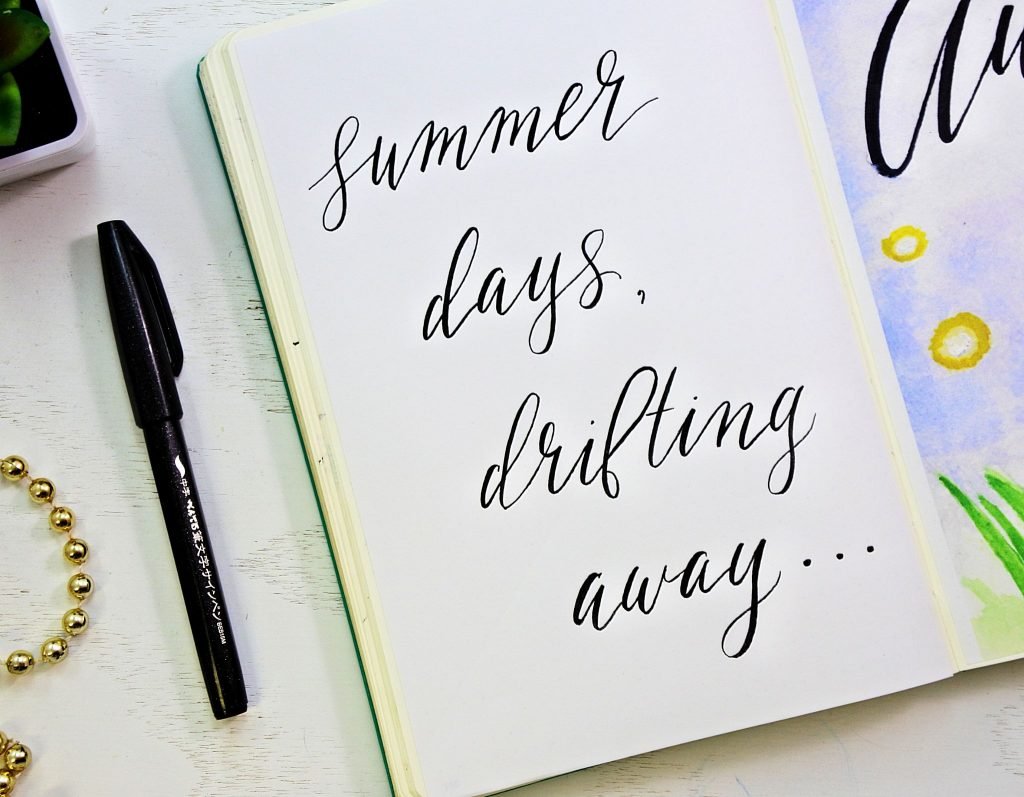 summer
days,
drifting
away...
Au
筆文字サインペン